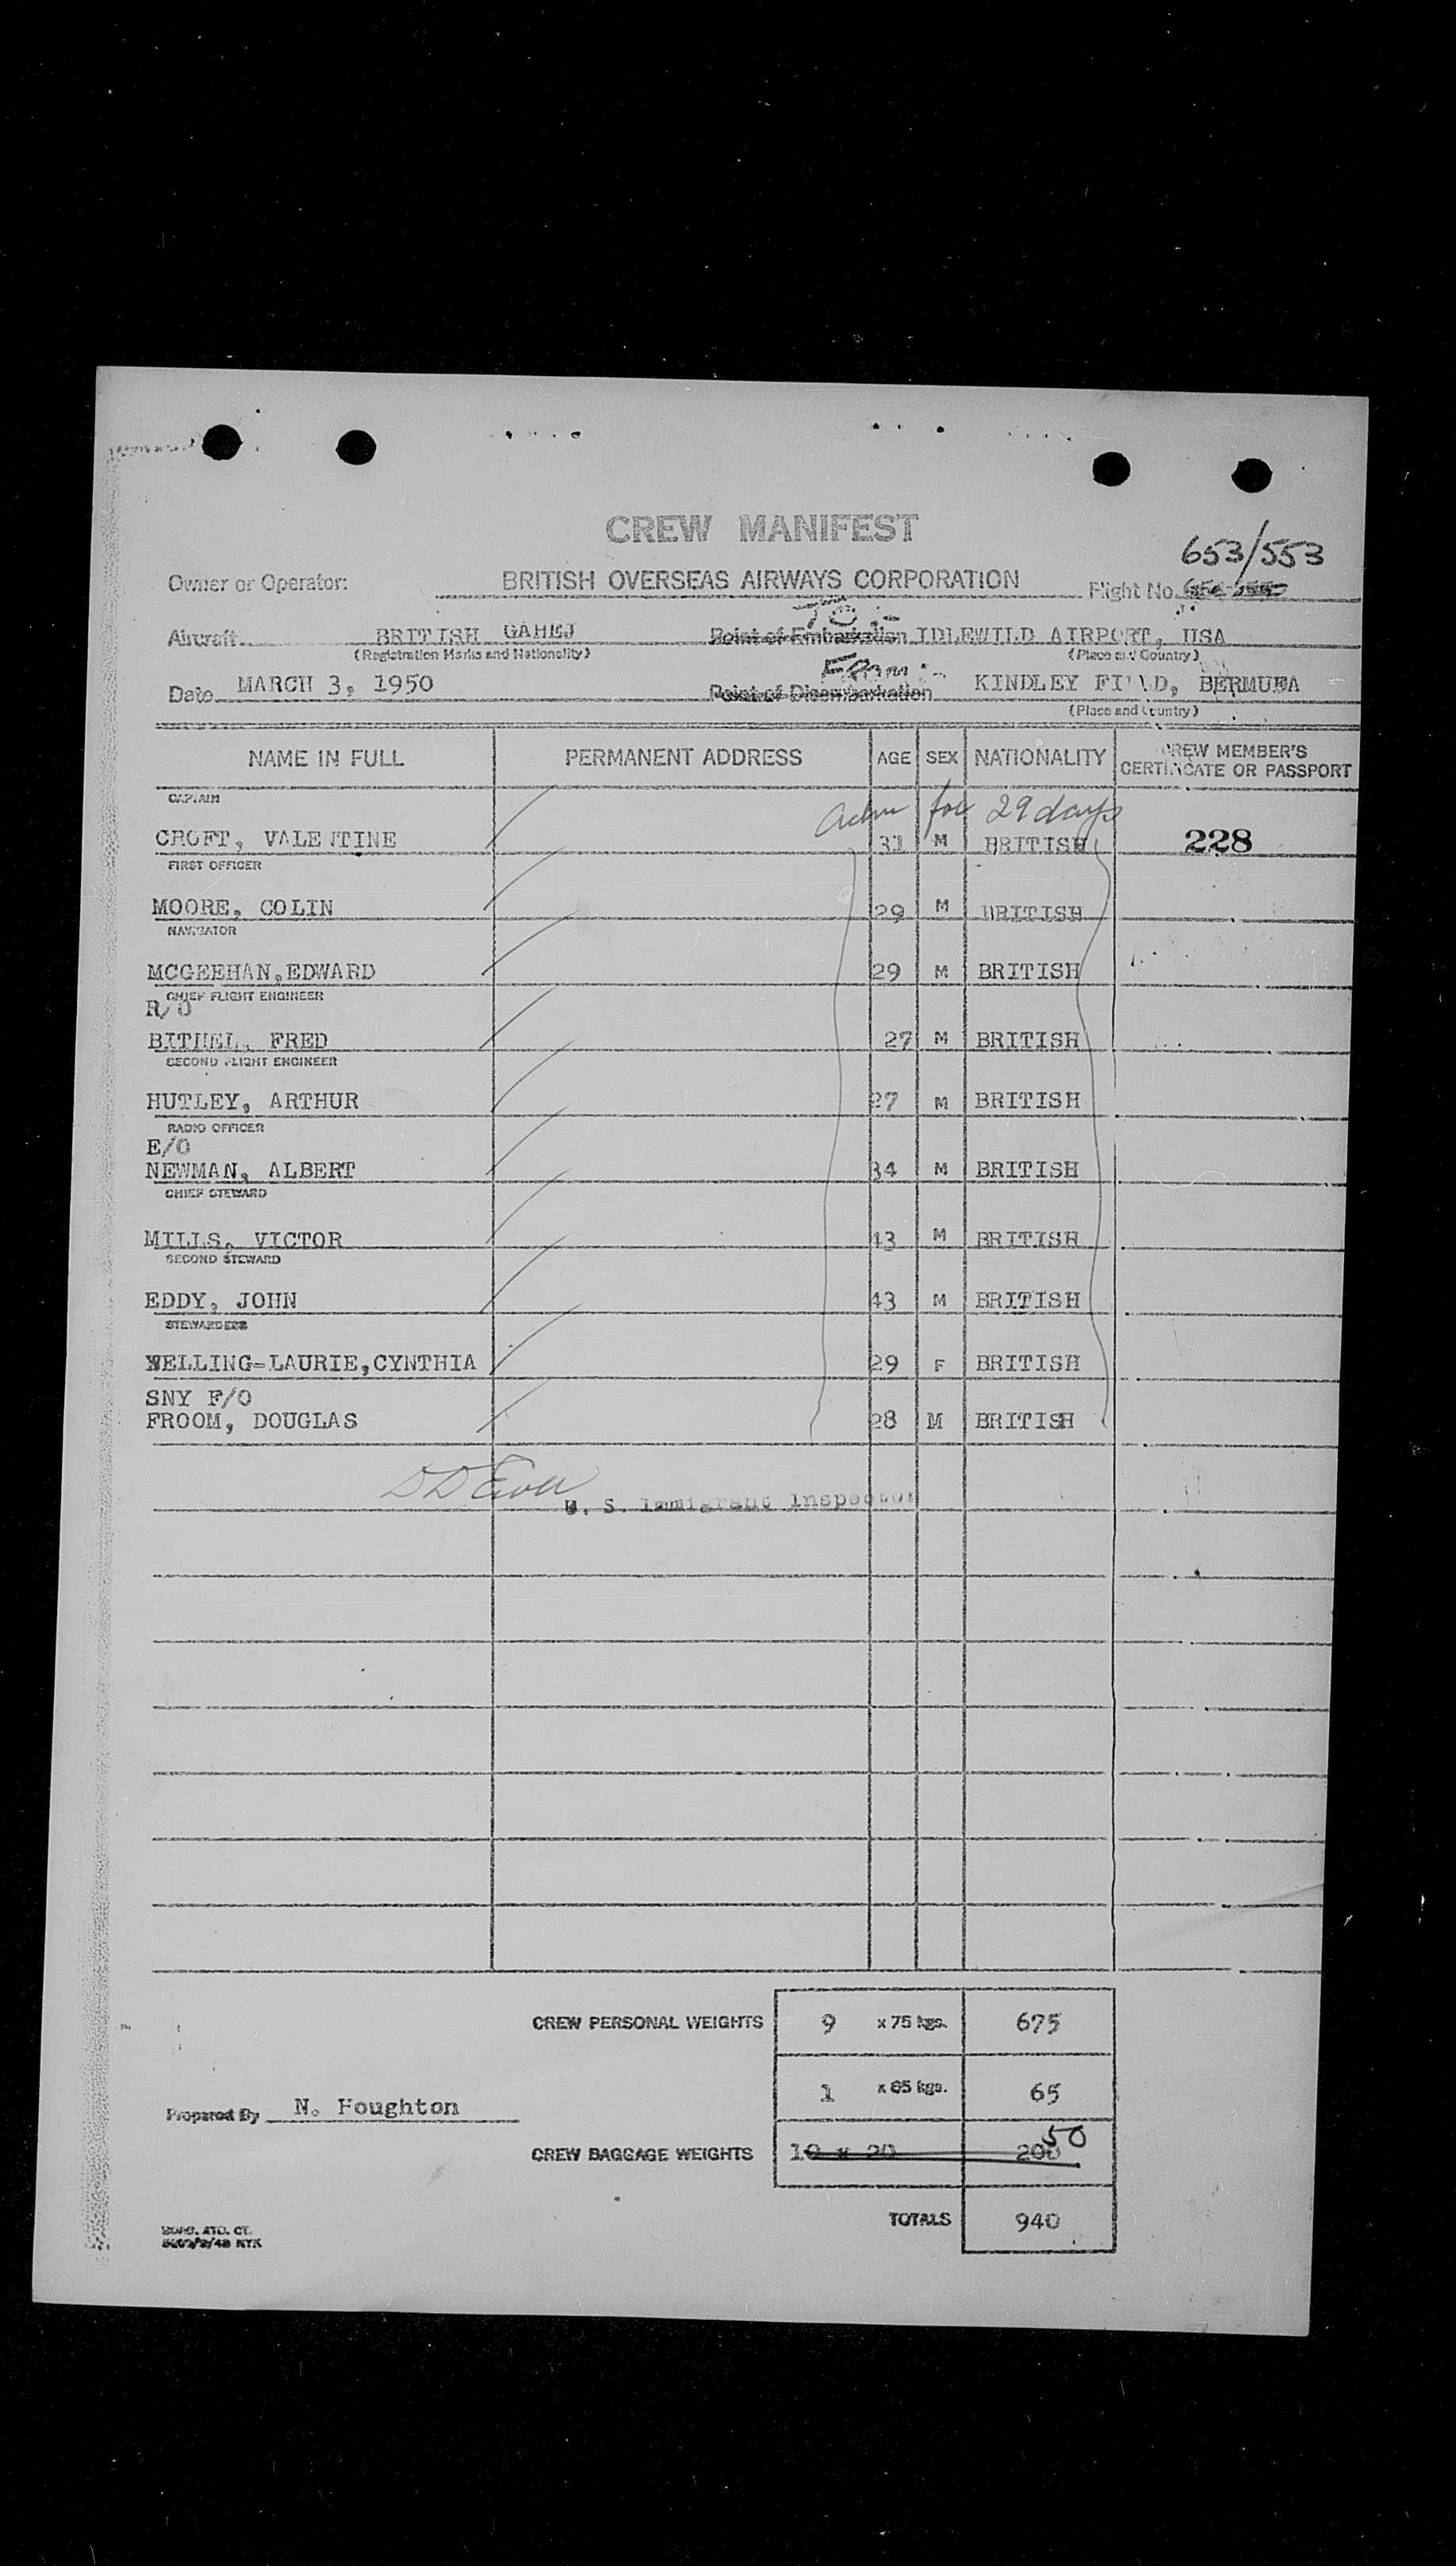 CREW MANIFEST
653/553
Owner or Operator: BRITISH OVERSEAS AIRWAYS CORPORATION Flight No.
TO:-
Aircraft BRITISH GAHEJ Point of Embarkation IDLEWILD AIRPORT, USA
(Registration Marks and Nationality) (Place and Country)
FROM:-
Date MARCH 3, 1950 Point of Disembarkation KINDLEY FIELD, BERMUDA
(Place and Country)
NAME IN FULL PERMANENT ADDRESS AGE SEX NATIONALITY CREW MEMBER'S CERTIFICATE OR PASSPORT
CAPTAIN
Adm for 29 days
CROFT, VALENTINE 31 M BRITISH 228
FIRST OFFICER
MOORE, COLIN 29 M BRITISH
NAVIGATOR
MCGEEHAN,EDWARD 29 M BRITISH
CHIEF FLIGHT ENGINEER
R/O
BITHEL, FRED 27 M BRITISH
SECOND FLIGHT ENGINEER
HUTLEY, ARTHUR 27 M BRITISH
RADIO OFFICER
E/O
NEWMAN, ALBERT 34 M BRITISH
CHIEF STEWARD
MILLS, VICTOR 43 M BRITISH
SECOND STEWARD
EDDY, JOHN 43 M BRITISH
STEWARDESS
WELLING-LAURIE,CYNTHIA 29 F BRITISH
SNY F/O
FROOM, DOUGLAS 28 M BRITISH
U. S. Immigrant Inspector
CREW PERSONAL WEIGHTS 9 x 75 kgs. 675
1 x 65 kgs. 65
Prepared By N. Houghton
50
CREW BAGGAGE WEIGHTS 10 x 20 200
TOTALS 940